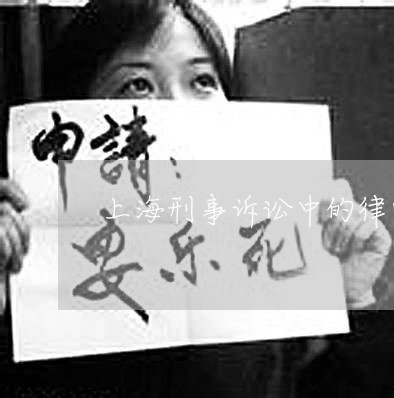 申請：
上海刑事诉讼中的律
安乐死